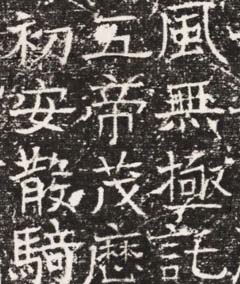 風無極託
五帝茂曆
初安散騎